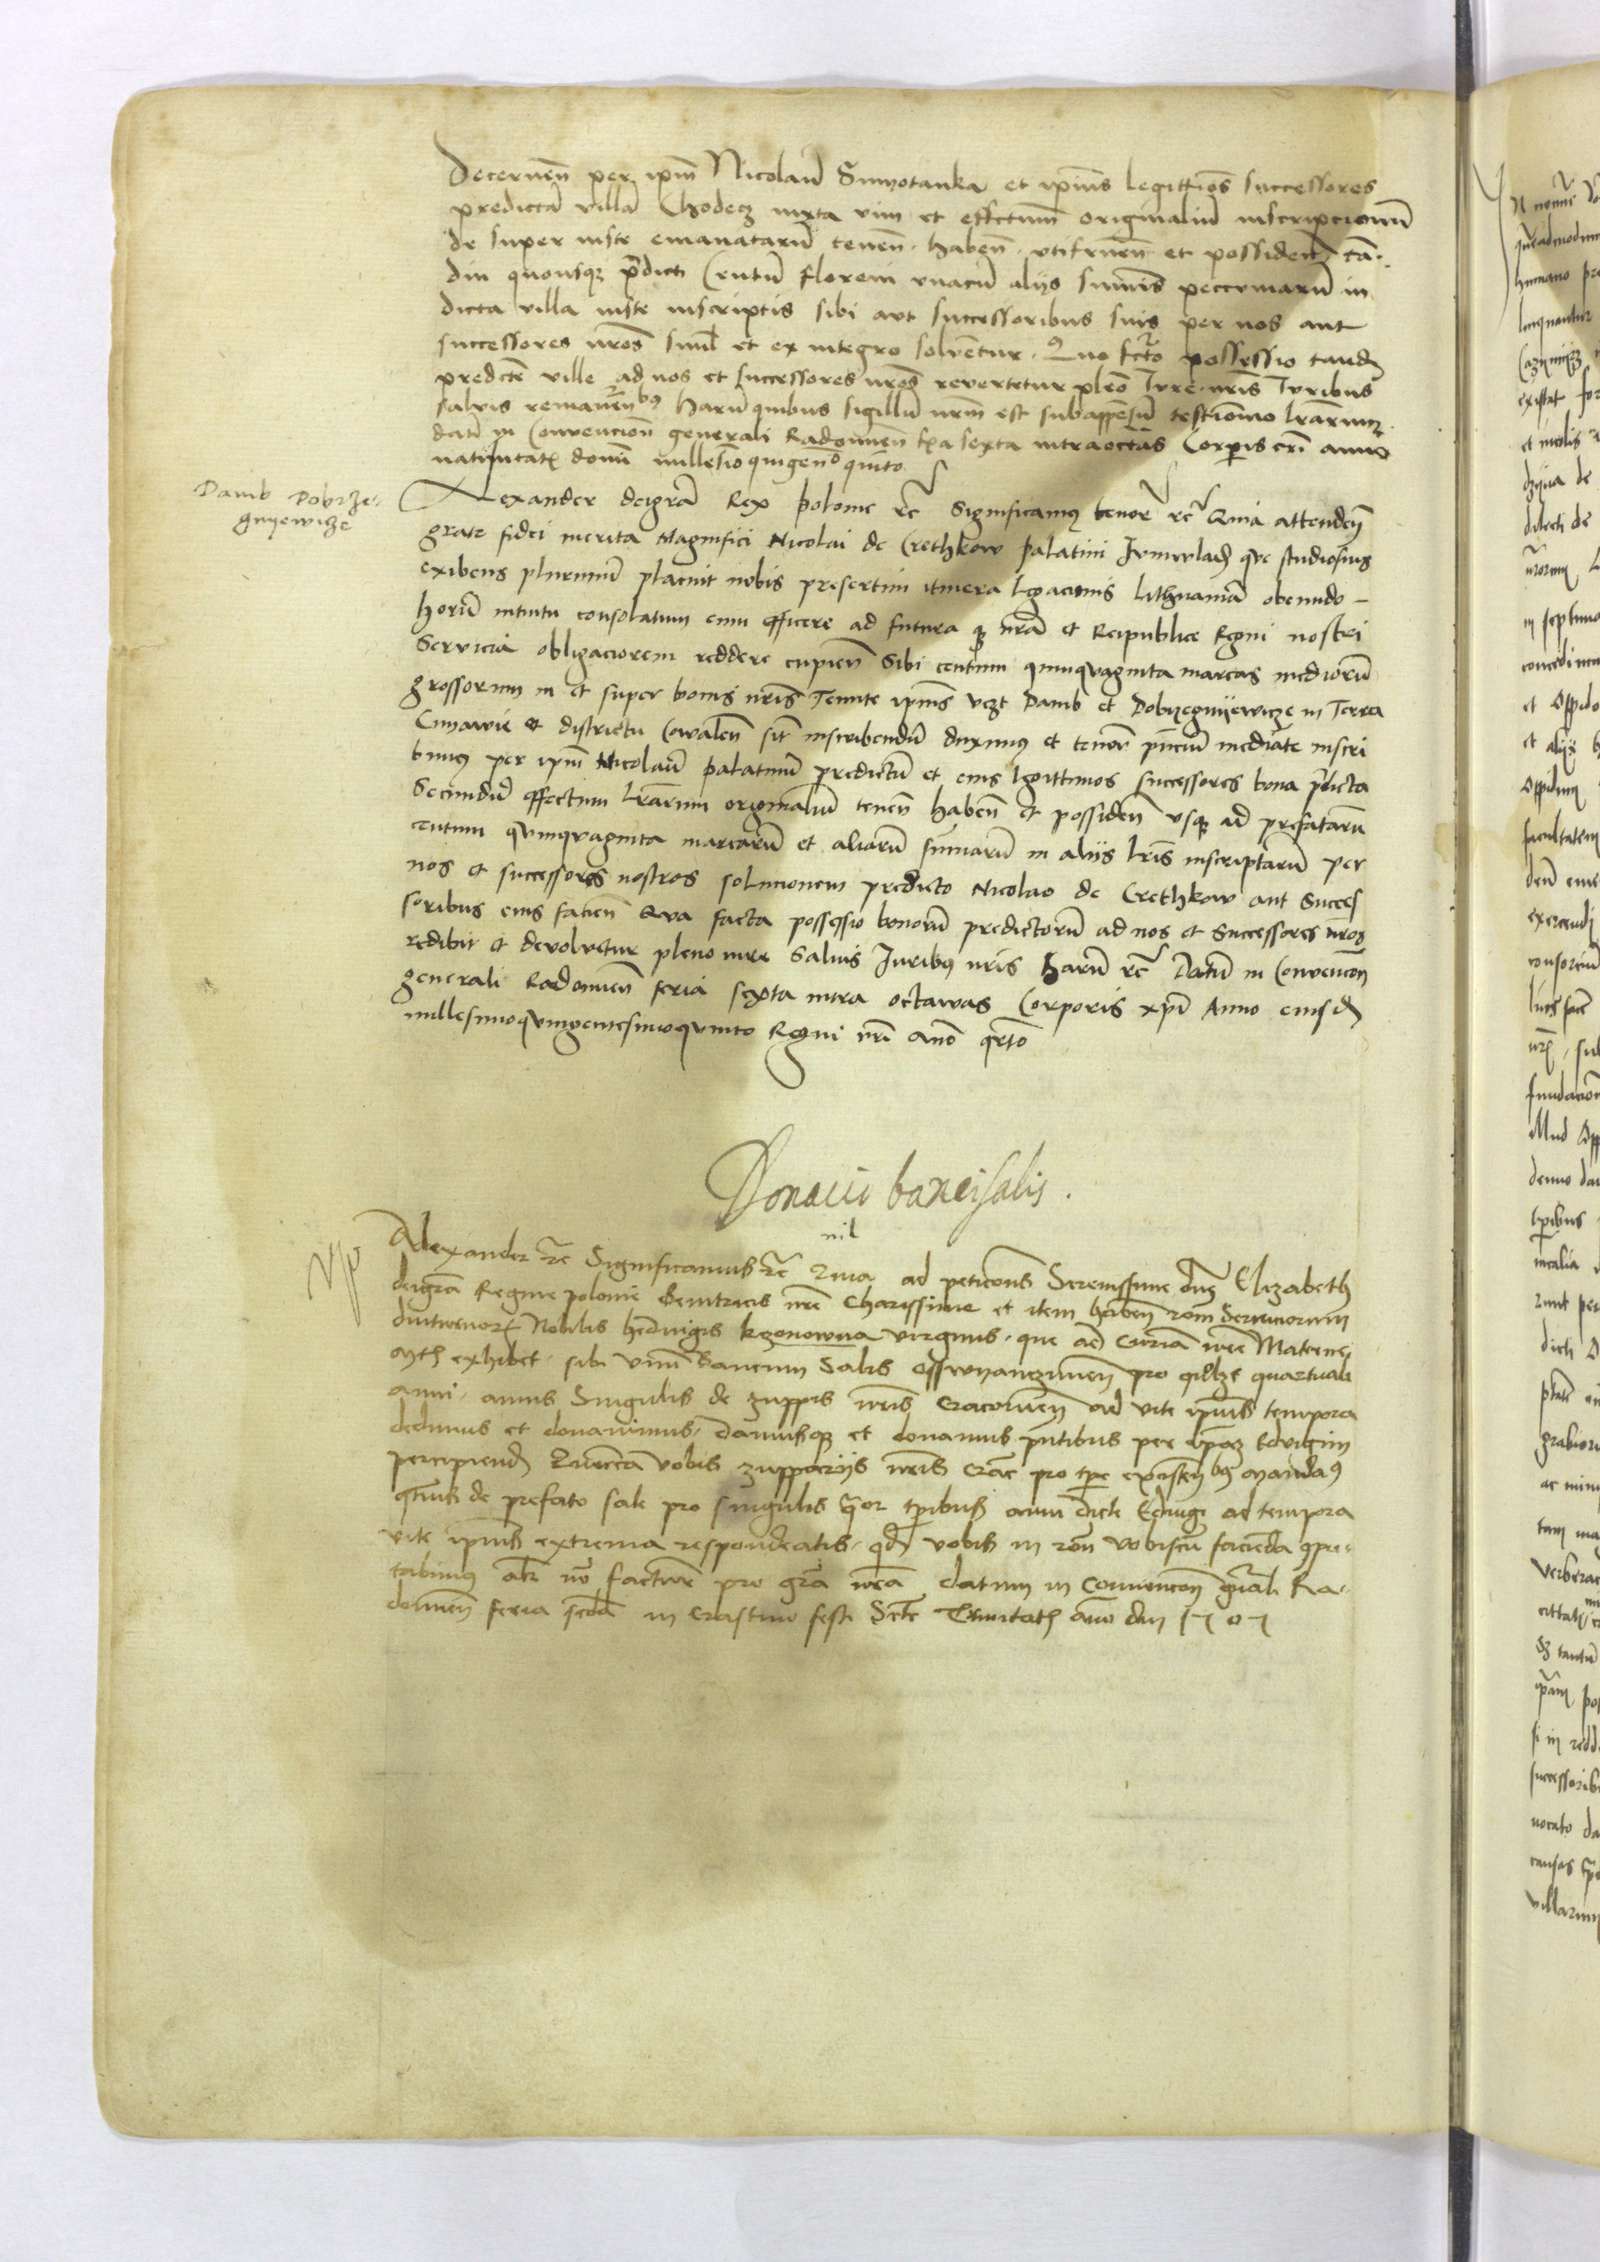 Decernen̄ per ip̄m Nicolaū Suwotanka et ip̄ius legittīos successores
predictā villā Chodecz iuxta vim et effectum originaliū inscripcionū
de super iuste emanatarū tenen̄ . haben̄ . vtifruen̄ et possiden̄ tā
diu quousq̄ p̄dicti Centū floreni vnacū aliis summis peccuniarū in
dicta villa iuste inscriptis sibi aut successoribus suis per nos aut
successores nr̄os siml̄ et ex integro soluentur . Quo fcto possessio tandē
predicte ville ad nos et successores nr̄os reuertetur pleō Iure . nr̄is Iuribus
saluis remanen̄bus Harū quibus sigillū nr̄m est subappensū testimōio lr̄arum
datū in Conuencione generali Radomien̄ fa sexta intra octās Corp̄is cr̄i anno
natiuitatis domī millesīo quigen̄o quīto
Damb Dobrze-
gnyewicze
Alexander deigrā Rex polonie rc̄ Significamus tenor̄ rc̄ Quia attenden̄
grate fidei merita Magnifici Nicolai de Crethkow palatini Iuniwladis que studiosius
exibens plurimū placuit nobis presertim itinera legacionis Lithuaniā obeundo -
horū intuitu consolatum eum efficere ad futura q̄ nr̄a et Reipublice Regni nostri
Seruicia obligaciorem reddere cupien̄ Sibi centum quinquaginta marcas mediorū
grossorum in et super bonis nr̄is Tenute ip̄ius vczt Damb et Dobrzegnyewicze in Terra
Cuiawie et districtu Cowalen̄ sit̄ inscribendū duximus et tenore p̄nciū mediāte inscri
bimus per ip̄m Nicolaū palatinū predictū et eius legittimos successores bona p̄dicta
Secundū effectum lr̄arum originaliū tenen̄ haben̄ et possiden̄ vsq̄ ad prefatarū
centum quinquaginta marcarū et aliarū summarū in aliis lr̄is inscriptarū per
nos et successores nostros solucionem predicto Nicolao de Crethkow aut Succes
soribus eius facien̄ Qua facta possessio bonorū predictorū ad nos et Successores nr̄os
redibit et deuoluetur pleno iure Saluis Iuribus nr̄is Harū rc̄ Datū in Conuencōn
generali Radomien̄ feria sexta intra octawas Corporis xp̄i Anno eiusd̄
millesimoquingentesimoquinto Regni nr̄i anō qrto
Donacio bancisalis .
nil
Alexander rc̄ Significamus rc̄ Quia ad peticōnē Serenissime dn̄e Elizabeth
deigrā Regine polonie Genitricis nr̄e Charissime et item haben̄ rōm Seruiciorum
diuturnor̄ Nobilis heduigis kezonowna virginis . que ad Curiā nr̄e Materne
exhibet . sibi vnū bancum Salis pro qlbz̄t quartuali
anni . annis Singulis de zuppis nr̄is Cracouien̄ ad vite ip̄ius tempora
dedimus et donauimus . damusq̄ et donamus p̄ntibus per ip̄ā Eduigim
percipiend̄ Quocca vobis zupparijs nr̄is Crac̄ pro tp̄e existen̄bus mandamus
q̄tinus de prefato sale pro singulis q̄or tp̄ibus anni dicte Eduigi ad tempora
vite ip̄ius extrema respondeatis . qd̄ vobis in rōn vobiscū facienda p̄pu-
tabimus alr̄ nō factur̄ pro grā nr̄a datum in Conuencōn gn̄ali Ra-
domien̄ feria scdā in Crastino festi Scte Trinitatis anno dn̄i 1505